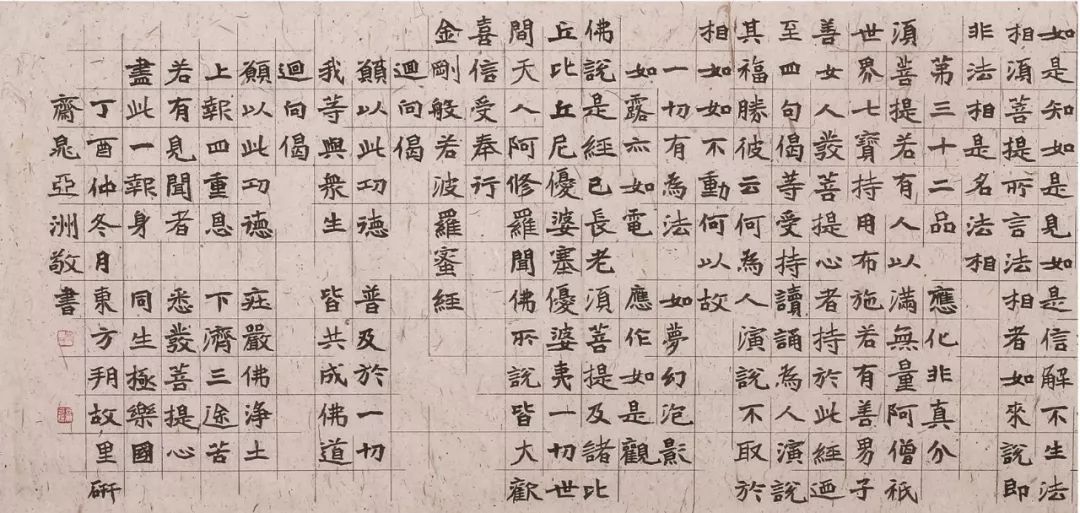 如是知如是見如是信解不生法
相須菩提所言法相者如來說即
非法相是名法相
第三十二品 應化非真分
須菩提若有人以滿無量阿僧祇
世界七寶持用布施若有善男子
善女人發菩提心者持於此經迺
至四句偈等受持讀誦為人演說
其福勝彼云何為人演說不取於
相如如不動何以故
一切有為法 如夢幻泡影
如露亦如電 應作如是觀
佛說是經已長老須菩提及諸比
丘比丘尼優婆塞優婆夷一切世
間天人阿修羅聞佛所說皆大歡
喜信受奉行
金剛般若波羅蜜經
迴向偈
願以此功德 普及於一切
我等與衆生 皆共成佛道
迴向偈
願以此功德 莊嚴佛淨土
上報四重恩 下濟三途苦
若有見聞者 悉發菩提心
盡此一報身 同生極樂國
丁酉仲冬月東方朔故里研
齋晁亞洲敬書